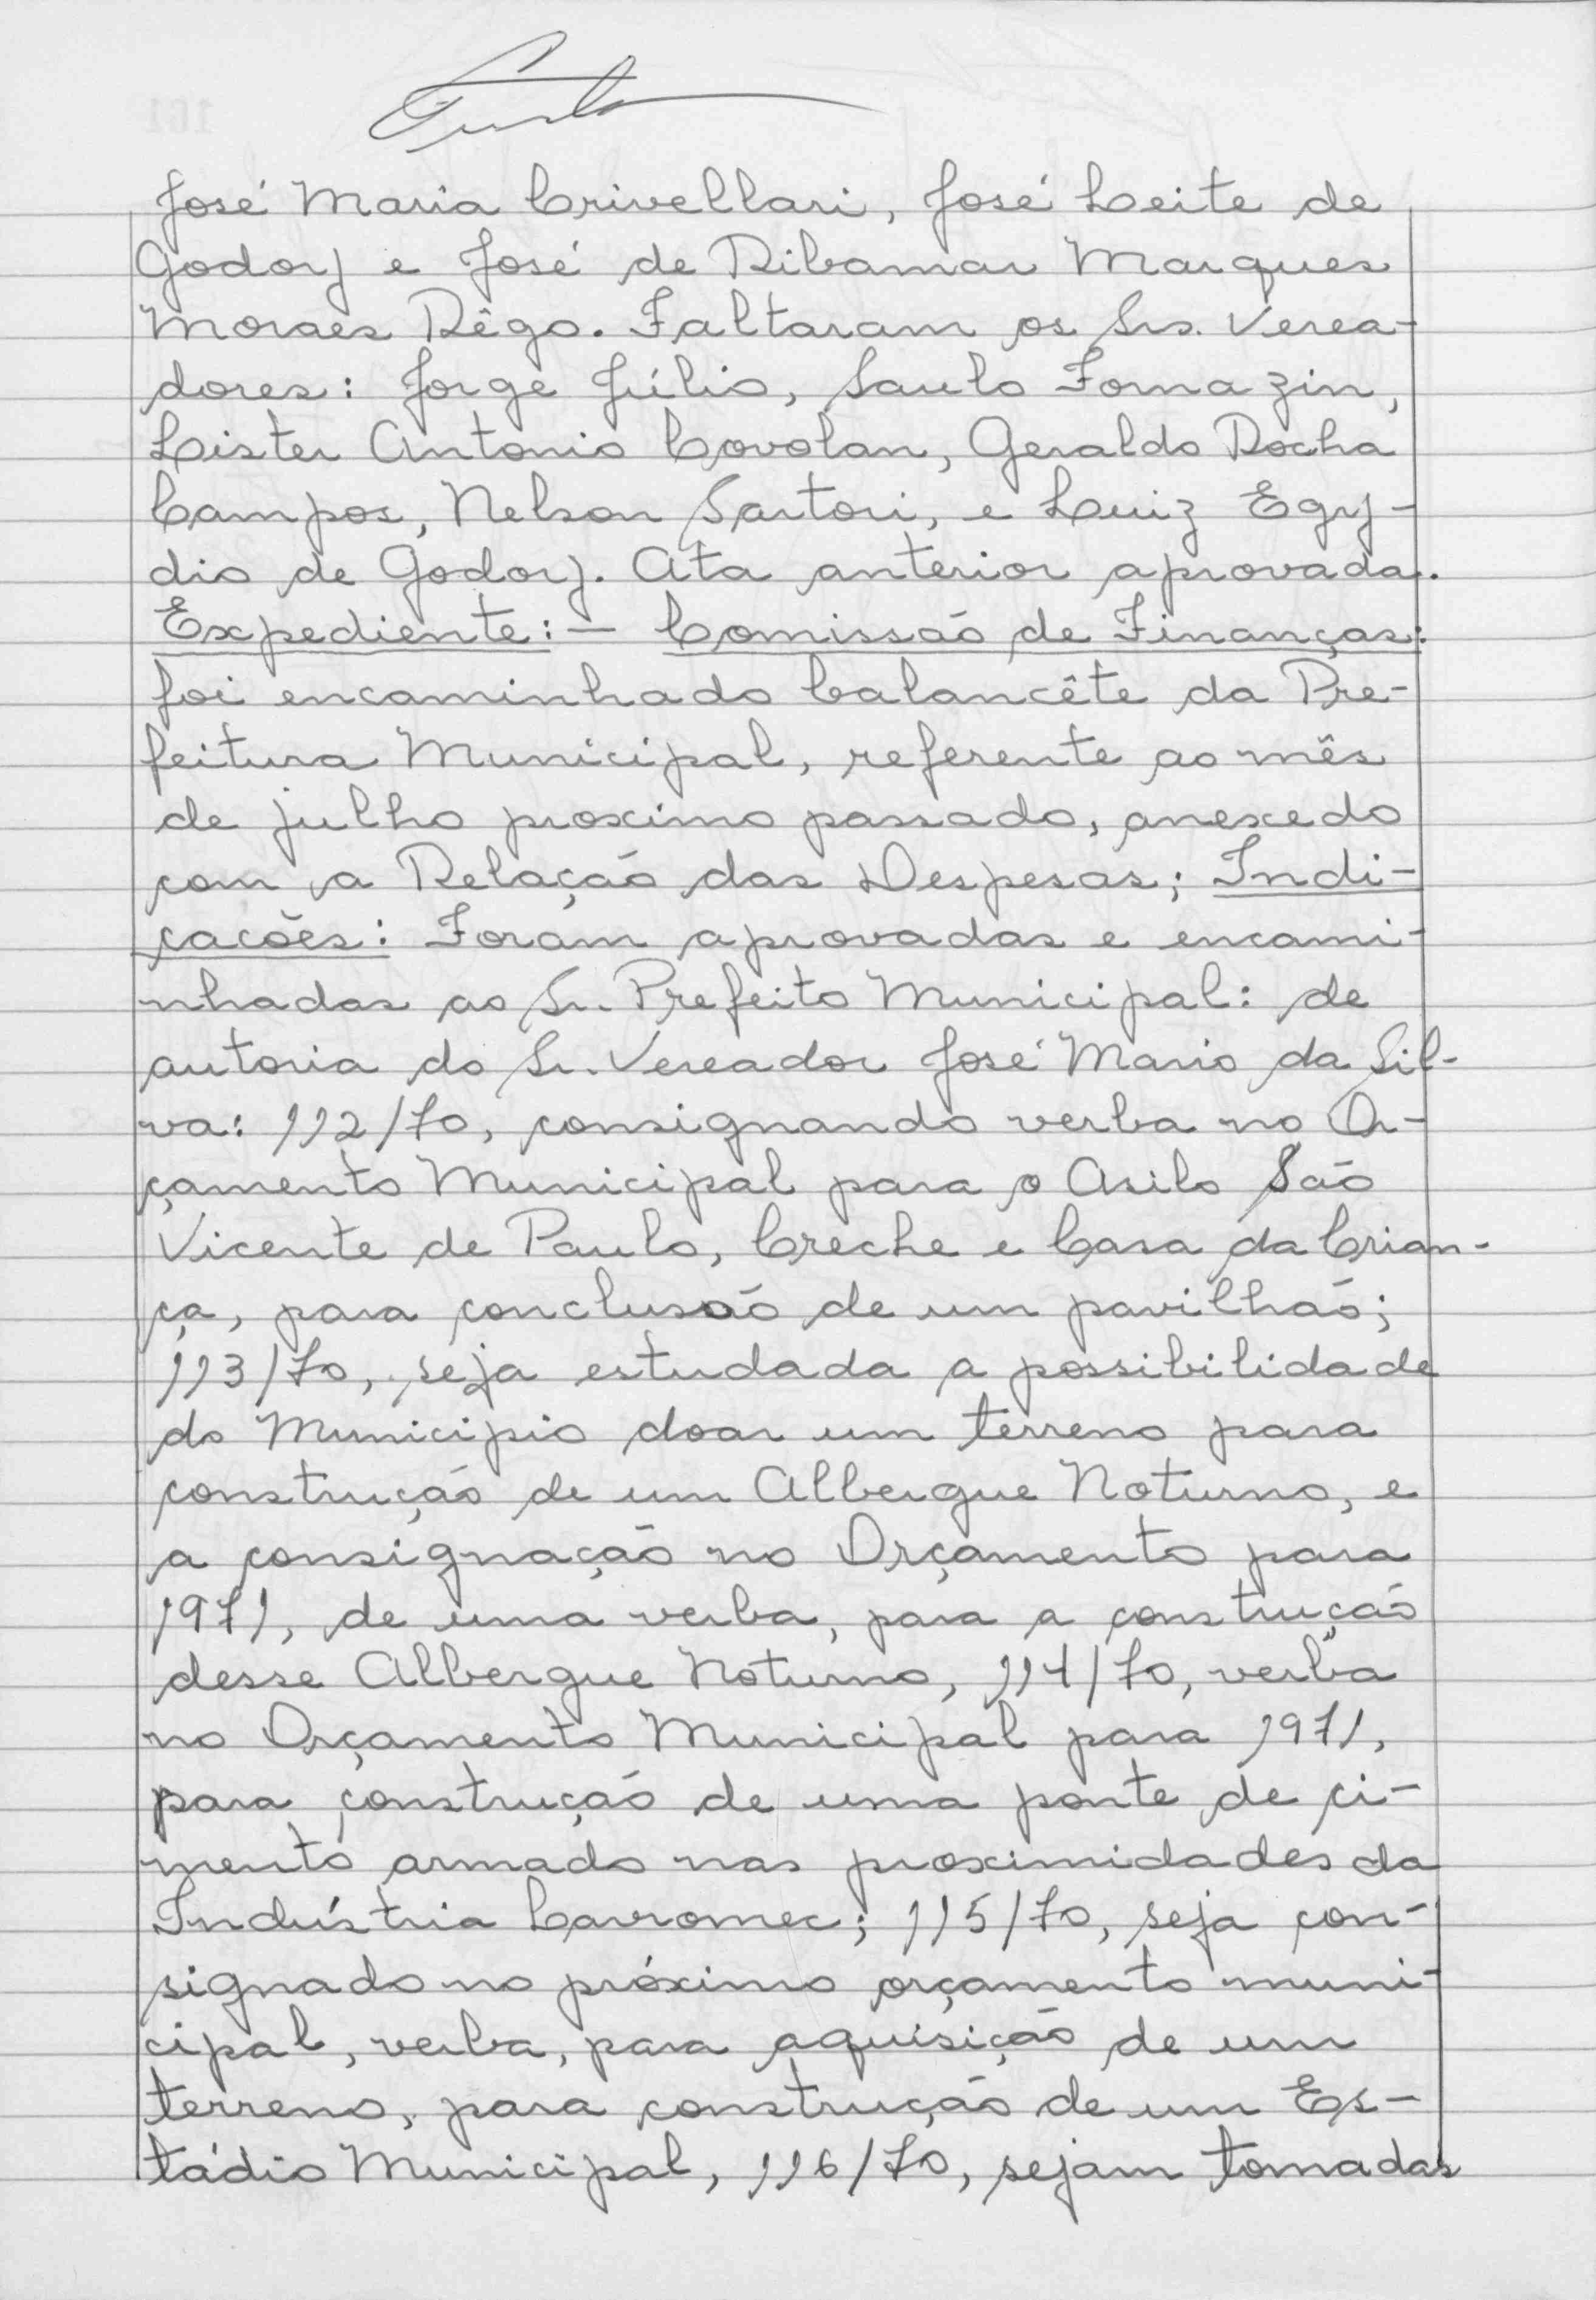 José Maria Crivellari, José Leite de
Godoy e José de Ribamar Marques
Moraes Rêgo. Faltaram os Srs. Verea-
dores: Jorge Júlio, Saulo Fornazin,
Lister Antonio Covolan, Geraldo Rocha
Campos, Nelson Sartori, e Luiz Egy-
dio de Godoy. Ata anterior aprovada.
Expediente:- Comissão de Finanças:
foi encaminhado balancête da Pre-
feitura Municipal, referente ao mês
de julho proximo passado, anexedo
com a Relação das Despesas; Indi-
cacões: Foram aprovadas e encami-
nhadas ao Sr. Prefeito Municipal: de
autoria do Sr. Vereador José Mario da Sil-
va: 112/70, consignando verba no Or-
çamento Municipal para o Asilo São
Vicente de Paulo, Creche e Casa da Crian-
ça, para conclusão de um pavilhão;
113/70, seja estudada a possibilidade
do Municipio doar um terreno para
construção de um Albergue Noturno, e
a consignação no Orçamento para
1971, de uma verba, para a construção
desse Albergue Noturno, 114/70, verba
no Orçamento Municipal para 1971,
para construção de uma ponte de ci-
mento armado nas proximidades da
Indústria Cavromec; 115/70, seja con-
signado no próximo orçamento muni-
cipal, verba, para aquisição de um
terreno, para construção de um Es-
tádio Municipal, 116/70, sejam tomadas